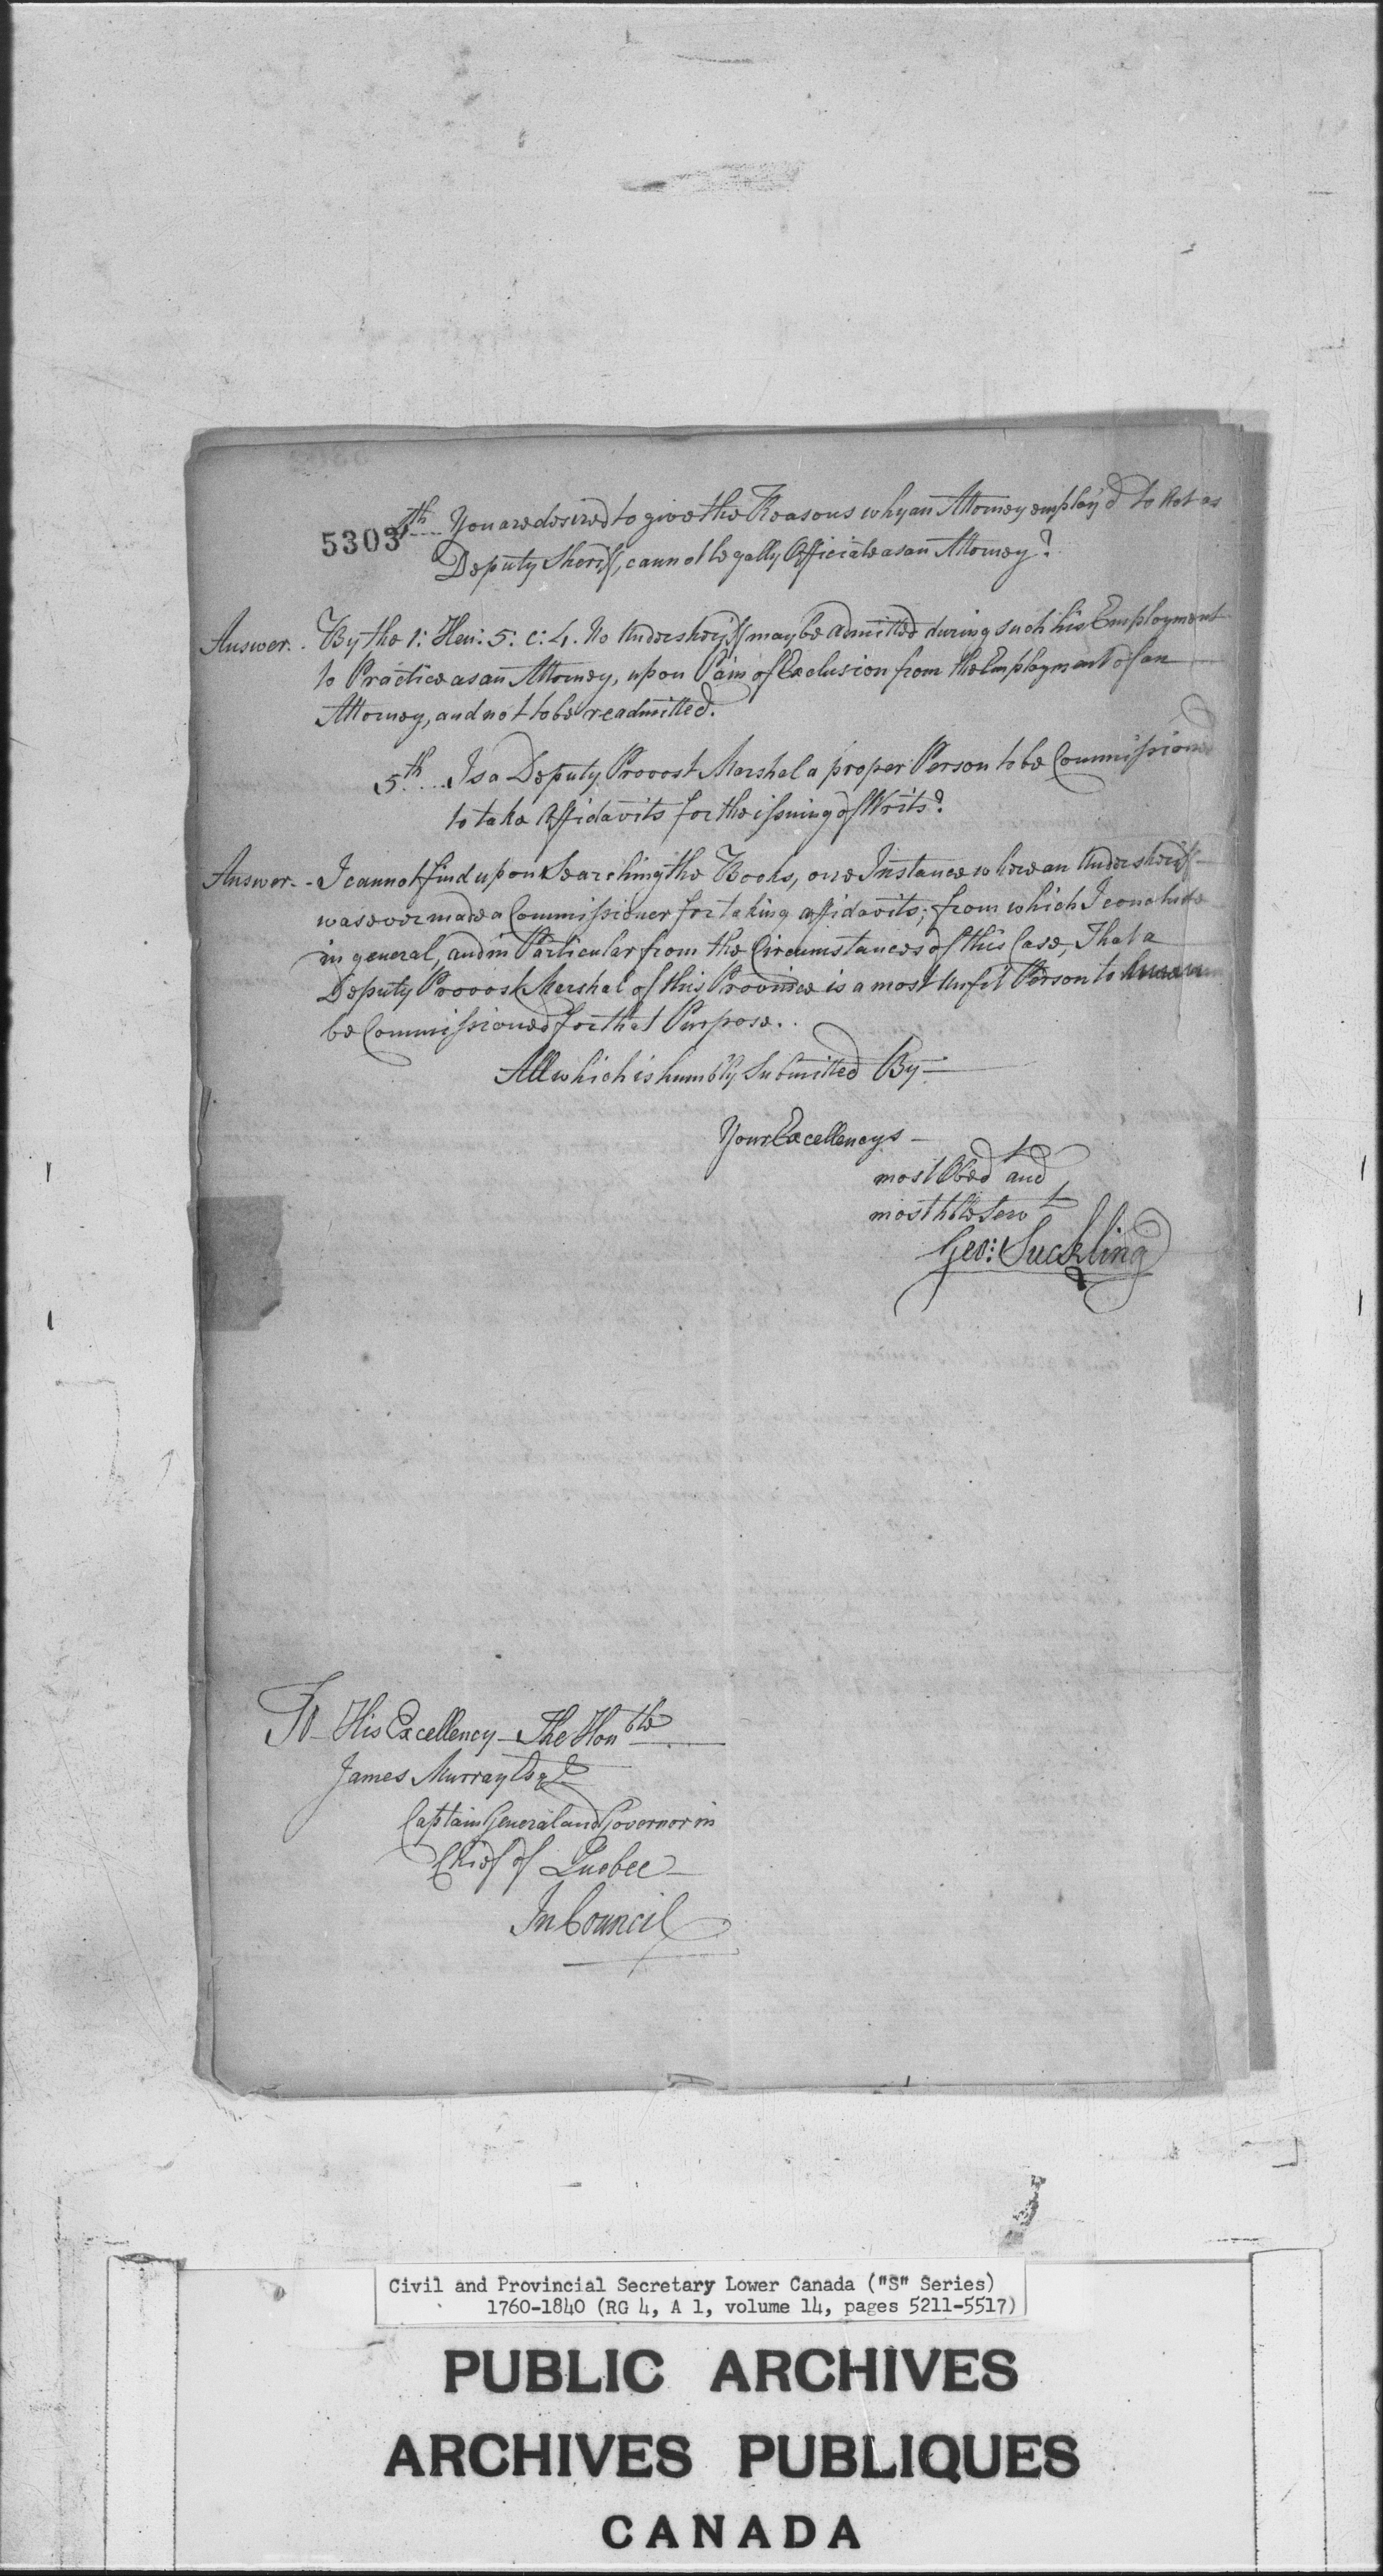 5303
th.... You are desired to give the Reasons why an Attorney employ'd to Act as
Deputy Sheriff, cannot legally Officiate as an Attorney?
Answer.. By the 1: Hen: 5: c: 4. No Undersheriff may be admitted during such his Employment
to Practice as an Attorney, upon Pain of Exclusion from the Employment of an
Attorney, and not to be readmitted.
5th.... Is a Deputy Provost Marshal a proper Person to be Commissioned
to take Affidavits for the issuing of Writs?
Answer.. I cannot find upon Searching the Books, one Instance where an Undersheriff
was ever made a Commissioner for taking affidavits; from which I conclude
in general, and in Particular from the Circumstances of this Case, That a
Deputy Provost Marshal of this Province is a most Unfit Person to
be Commissioned for that Purpose..
All which is humbly Submitted By
Your Excellencys
most Obed.t and
most hble Serv.t
Geo: Suckling
To His Excellency The Honble
James Murray Esqr
Captain General and Governor in
Chief of Quebec
In Council
Civil and Provincial Secretary Lower Canada ("S" Series)
1760-1840 (RG 4, A 1, volume 14, pages 5211-5517)
PUBLIC ARCHIVES
ARCHIVES PUBLIQUES
CANADA